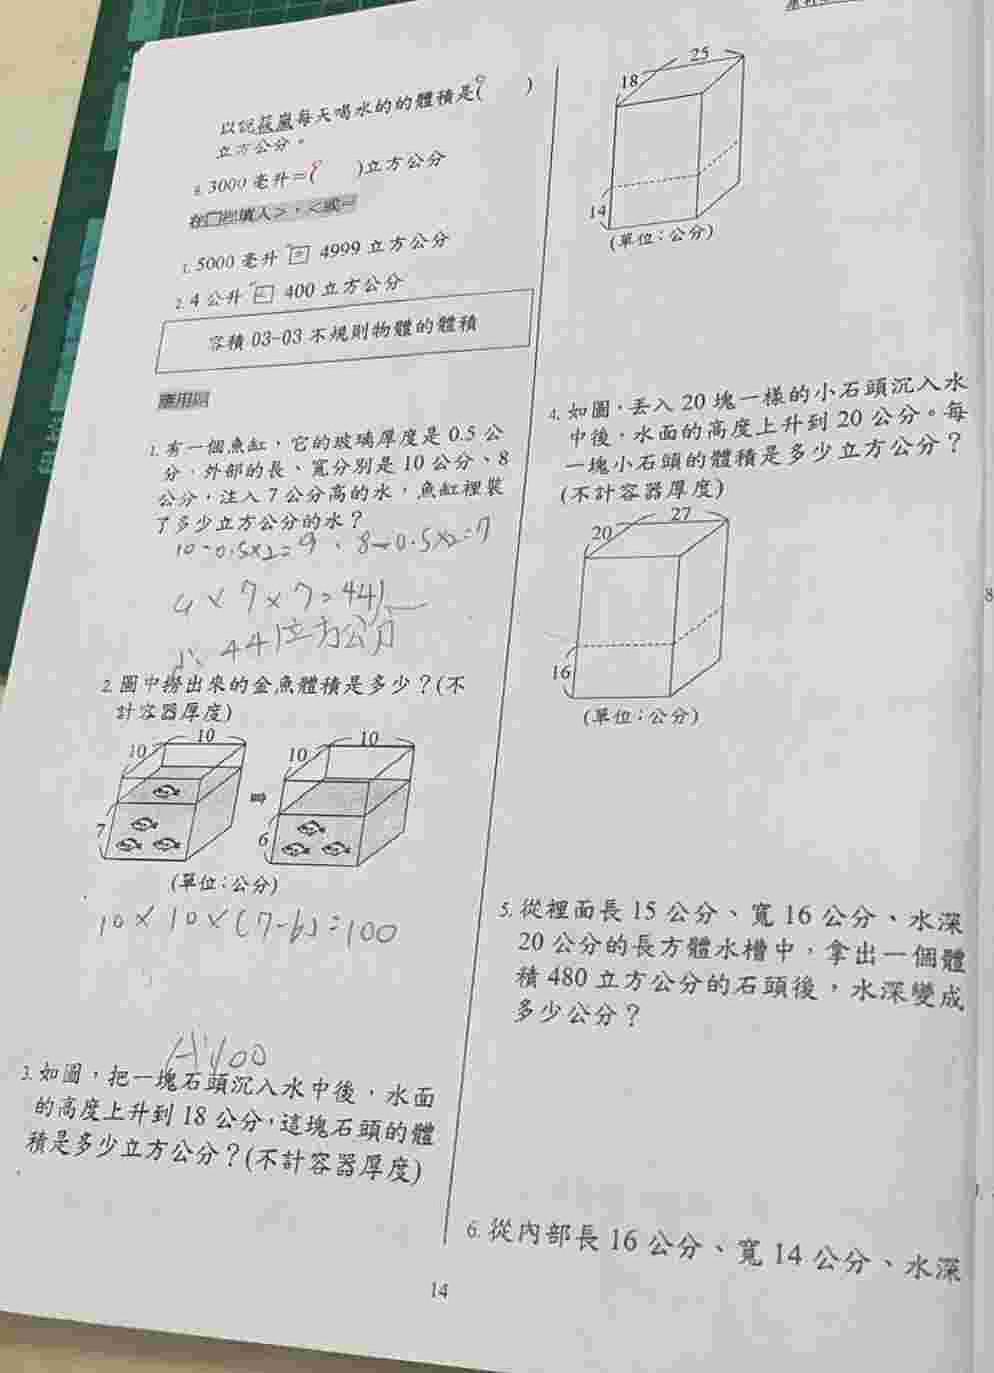 以說菽嵐每天喝水的的體積是( )
立方公分。
8. 3000 毫升=( )立方公分
在□裡填入>、<或=
1. 5000 毫升 = 4999 立方公分
2. 4 公升 400 立方公分
容積 03-03 不規則物體的體積
應用題
1. 有一個魚缸，它的玻璃厚度是 0.5 公
分，外部的長、寬分別是 10 公分、8
公分，注入 7 公分高的水，魚缸裡裝
了多少立方公分的水？
10-0.5×2=9、8-0.5×2=7
9×7×7=441
A:441立方公分
2. 圖中撈出來的金魚體積是多少？(不
計容器厚度)
10
10
7
10
10
6
(單位：公分)
10×10×(7-6)=100
A:100
3. 如圖，把一塊石頭沉入水中後，水面
的高度上升到 18 公分，這塊石頭的體
積是多少立方公分？(不計容器厚度)
25
18
14
(單位：公分)
4. 如圖，丟入 20 塊一樣的小石頭沉入水
中後，水面的高度上升到 20 公分。每
一塊小石頭的體積是多少立方公分？
(不計容器厚度)
27
20
16
(單位：公分)
5. 從裡面長 15 公分、寬 16 公分、水深
20 公分的長方體水槽中，拿出一個體
積 480 立方公分的石頭後，水深變成
多少公分？
6. 從內部長 16 公分、寬 14 公分、水深
14
8